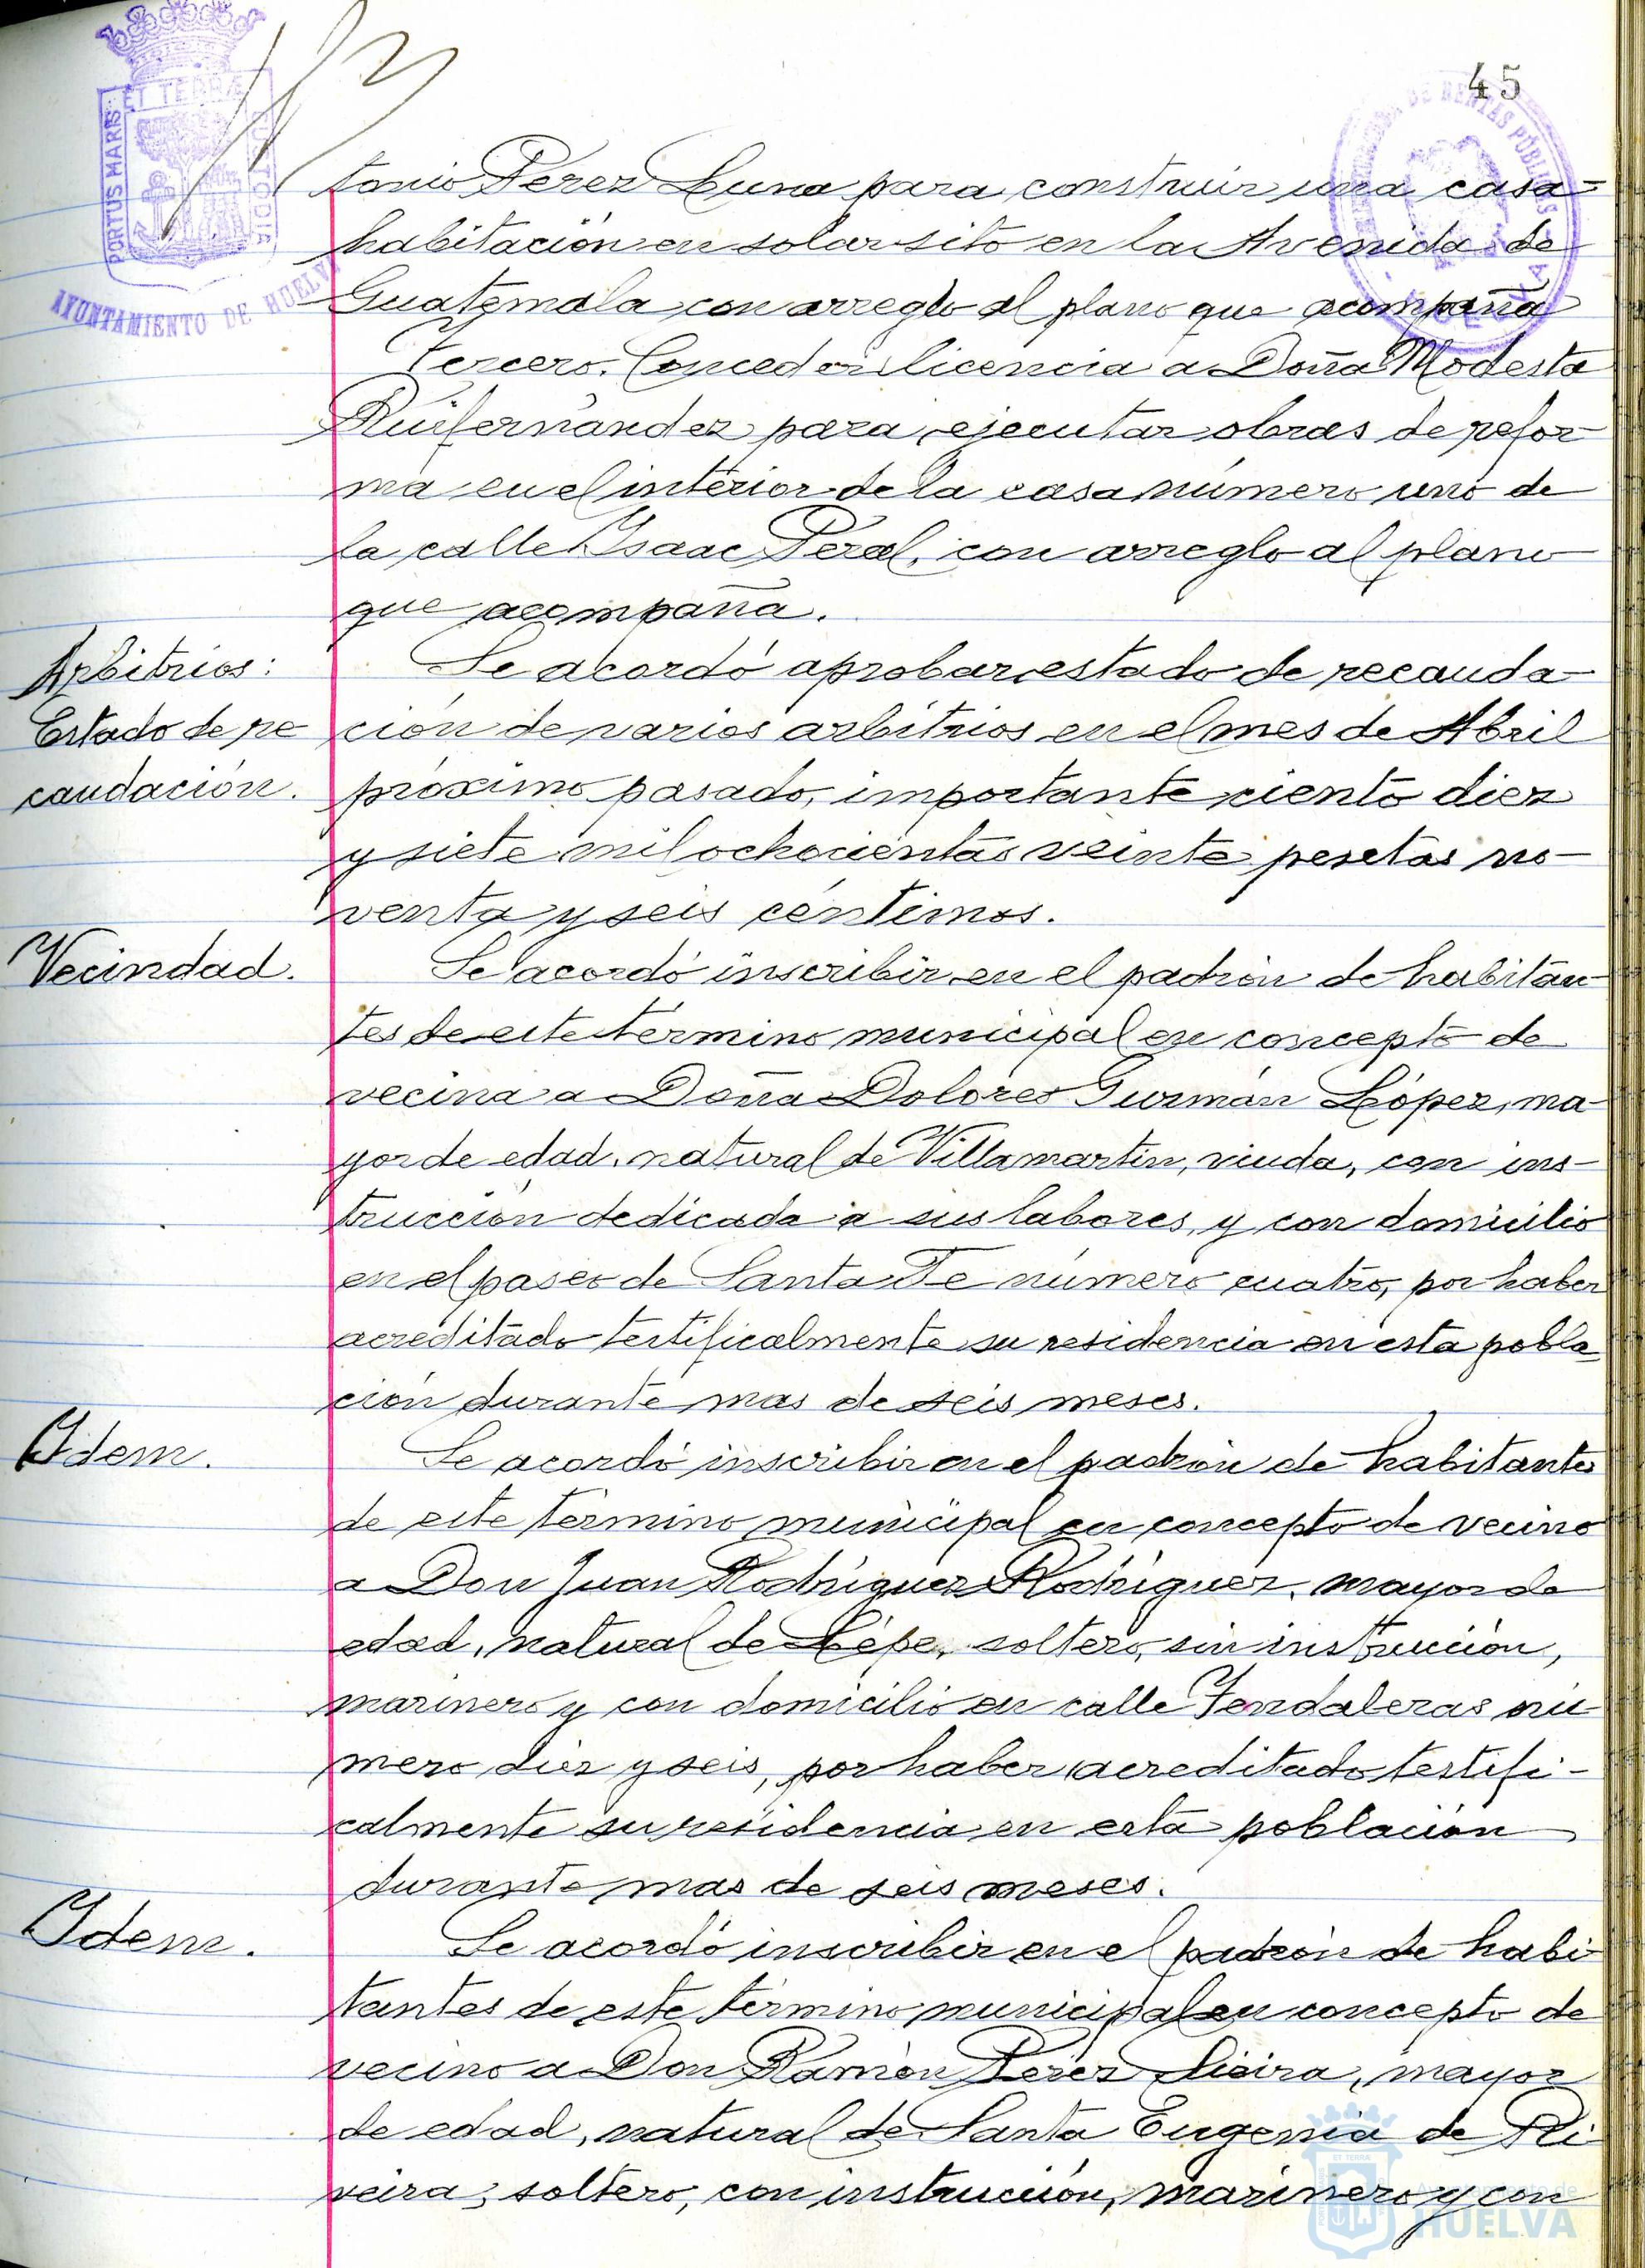 45
PORTUS MARIS ET TERRÆ CUSTODIA
AYUNTAMIENTO DE HUELVA
tonio Perez Luna para construir una casa
habitación en solar sito en la Avenida de
Guatemala con arreglo al plano que acompaña
Tercero. Conceder licencia a Doña Modesta
Ruifernandez para ejecutar obras de refor
ma en el interior de la casa número uno de
la calle Isaac Peral, con arreglo al plano
que acompaña.
Arbitrios:
Estado de re
caudación.
Se acordó aprobar estado de recauda
ción de varios arbitrios en el mes de Abril
próximo pasado, importante ciento diez
y siete mil ochocientas veinte pesetas no-
venta y seis céntimos.
Vecindad.
Se acordó inscribir en el padrón de habitan
tes de este término municipal en concepto de
vecina a Doña Dolores Guzmán López, ma
yor de edad, natural de Villamartin, viuda, con ins-
trucción dedicada a sus labores, y con domicilio
en el paseo de Santa Fe número cuatro, por haber
acreditado testificalmente su residencia en esta pobla
ción durante mas de seis meses.
Idem.
Se acordó inscribir en el padrón de habitantes
de este término municipal en concepto de vecino
a Don Juan Rodríguez Rodríguez, mayor de
edad, natural de Lepe, soltero, sin instrucción,
marinero y con domicilio en calle Tendaleras nú
mero diez y seis, por haber acreditado testifi-
calmente su residencia en esta población
durante mas de seis meses.
Idem.
Se acordó inscribir en el padrón de habi
tantes de este término municipal en concepto de
vecino a Don Ramón Perez Sieira, mayor
de edad, natural de Santa Eugenia de Ri
veira, soltero, con instrucción, marinero y con
Ayuntamiento de
HUELVA